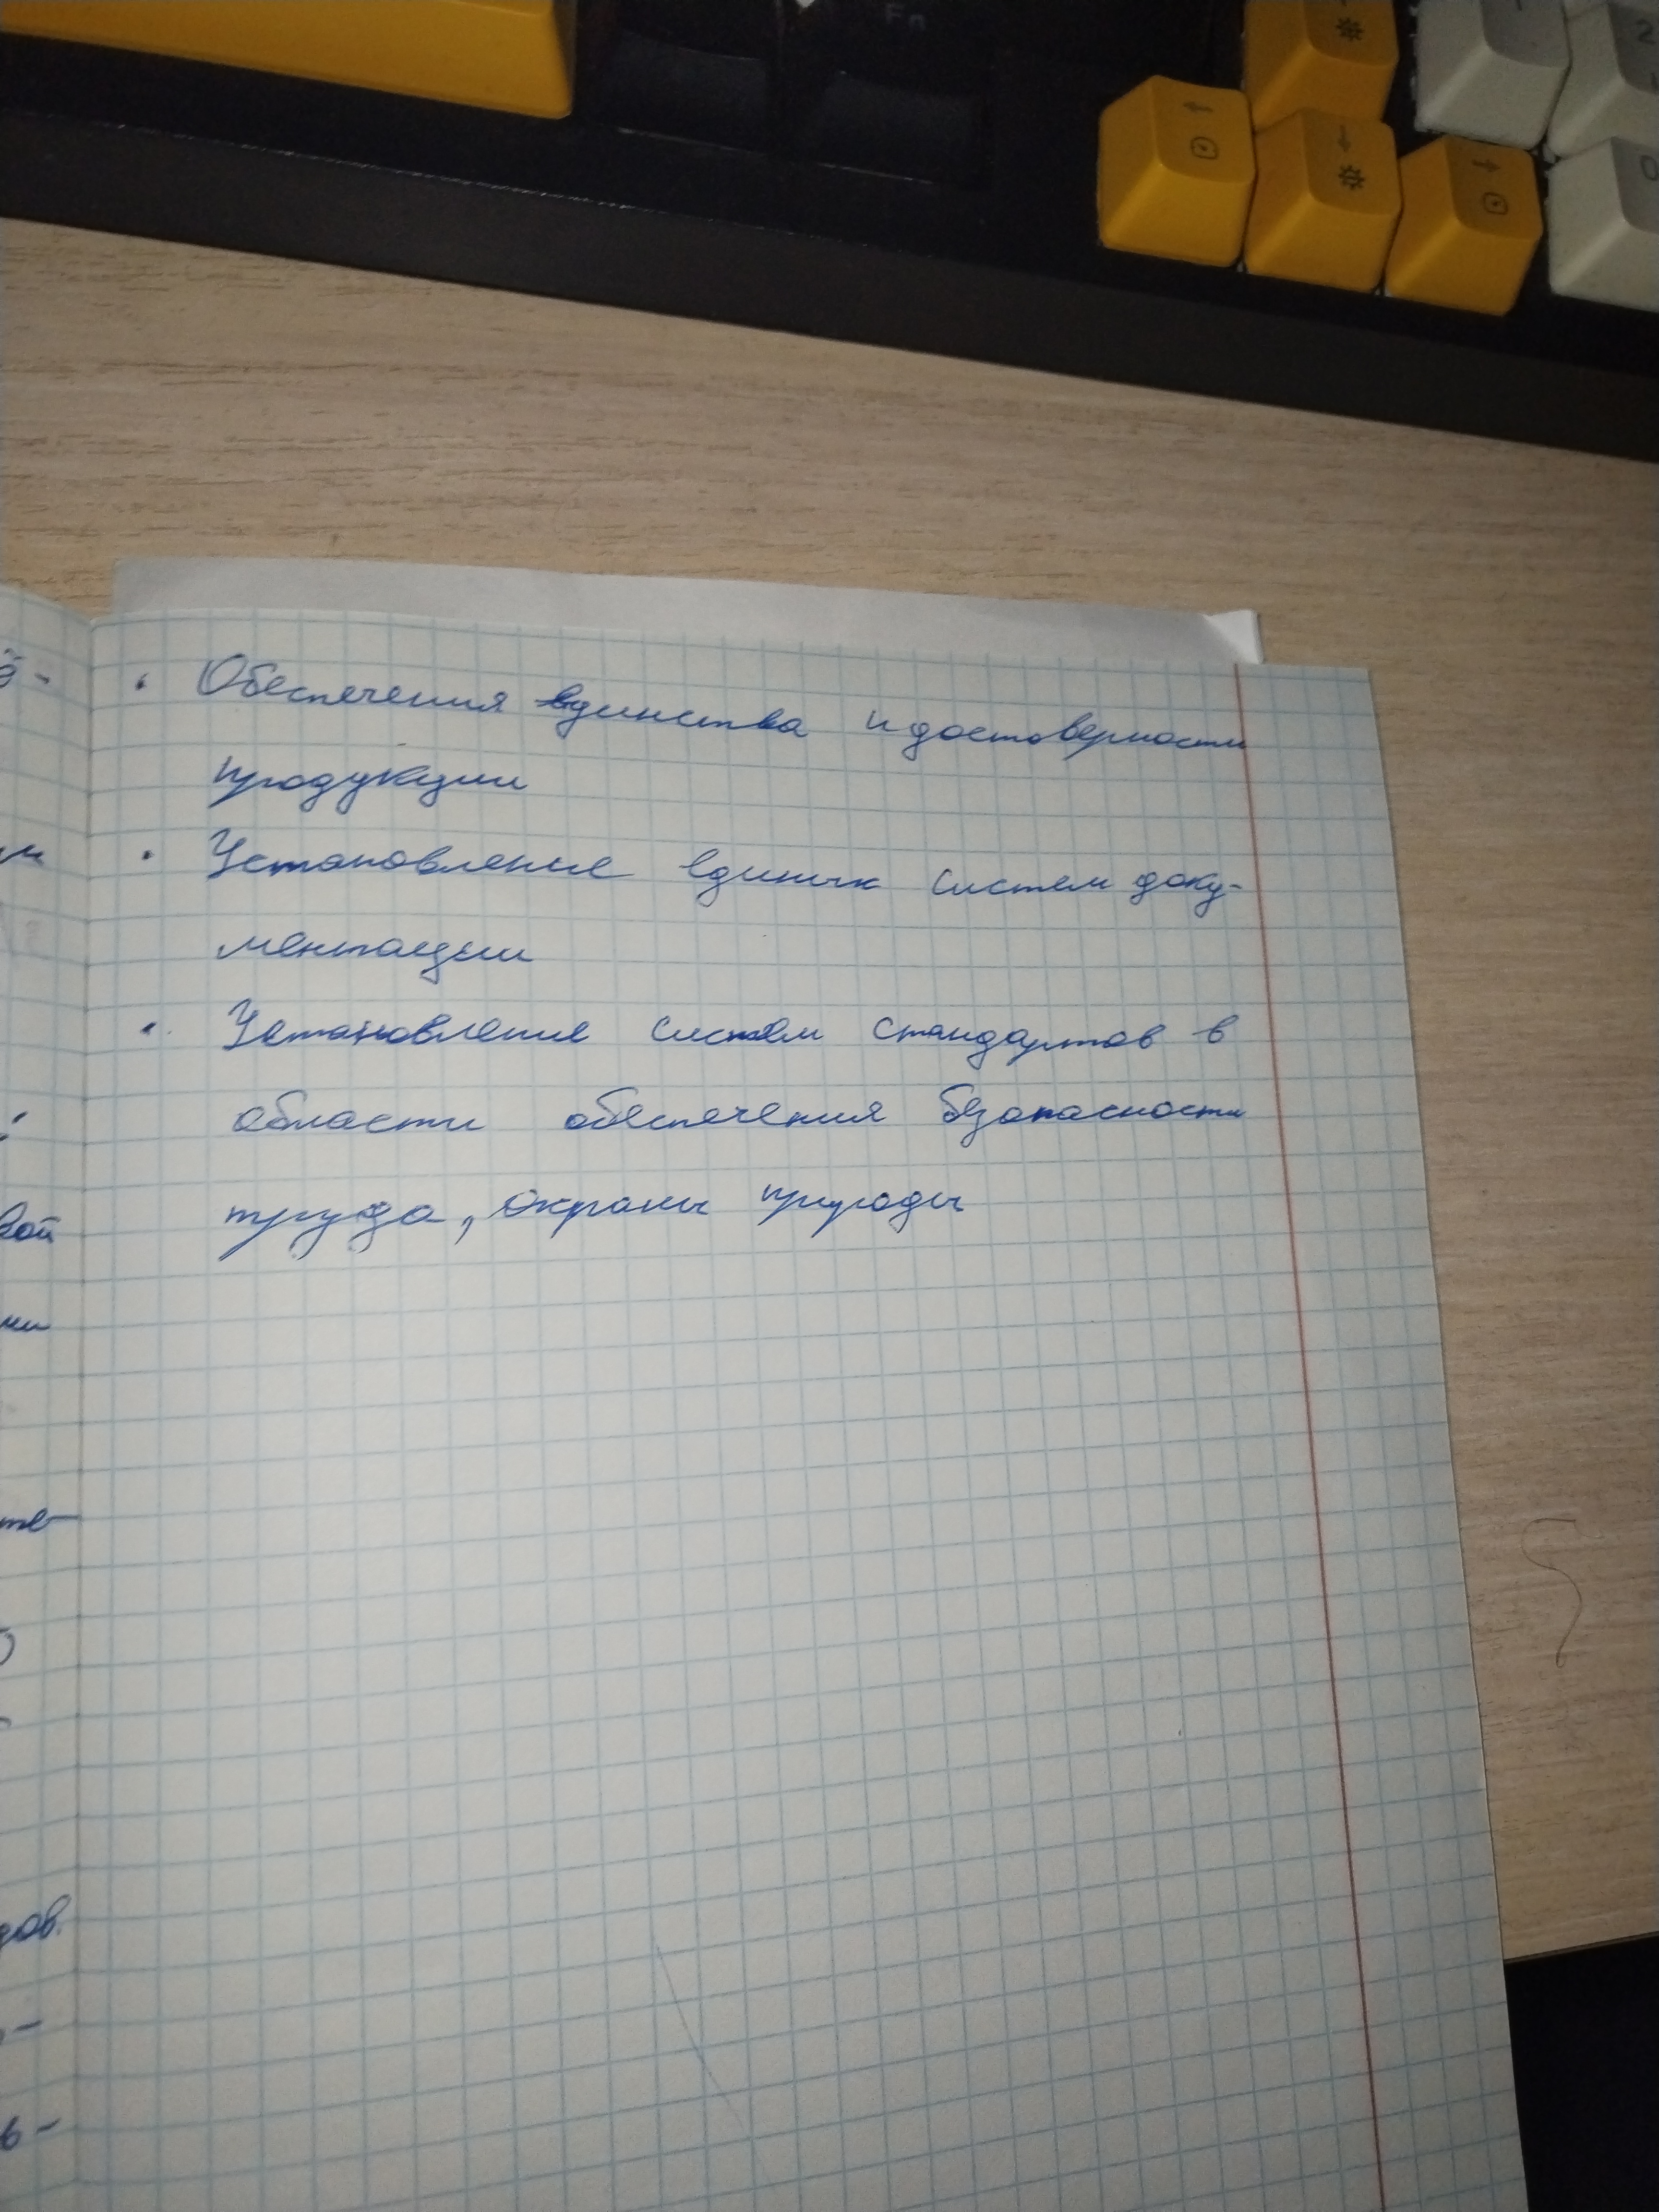 Fn
• Обеспечения единства и достоверности
продукции
• Установление единых систем доку-
ментации
• Установление систем стандартов в
области обеспечения безопасности
труда, охраны природы